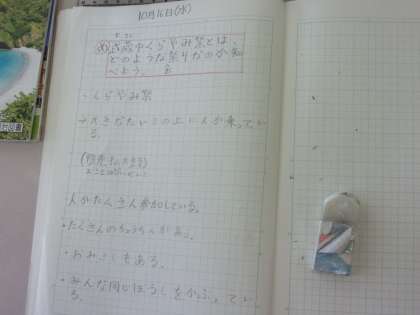 10月16日(水)
め 武蔵中くらやみ祭とは、
どのような祭りなのか知
べよう。
・くらやみ祭
→大きなたいこの上に人が乗ってい
る。
人がたくさん参加している。
・たくさんのちょうちんがある。
・おみこしもある。
・みんな同じぼうしをかぶってい
る。